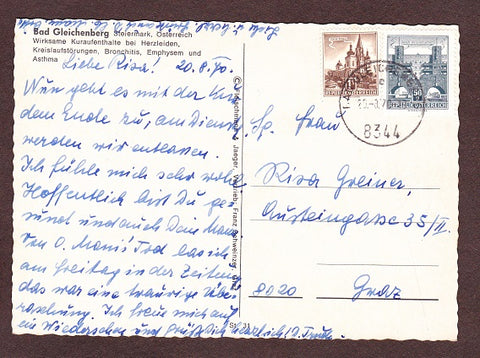 Bad Gleichenberg Steiermark, Österreich
Wirksame Kuraufenthalte bei Herzleiden,
Kreislaufstörungen, Bronchitis, Emphysem und
Asthma
Liebe Risa! 20.8.70.
Nun geht es mit der Kur
dem Ende zu, am Dienst.
werden wir entlassen.
Ich fühle mich sehr wohl
Hoffentlich bist Du ge-
sund und auch Dein Mann.
Von O. Mani's Tod las ich
am Freitag in der Zeitung
das war eine traurige Über-
raschung. Ich freue mich auf
ein Wiedersehen und grüße Dich herzlich D. Trude.
Sp. Frau
Risa Greiner,
Austeingasse 35/II.
8020 Graz
REPUBLIK ÖSTERREICH
REPUBLIK ÖSTERREICH
50
8344
Franz Schwenzig